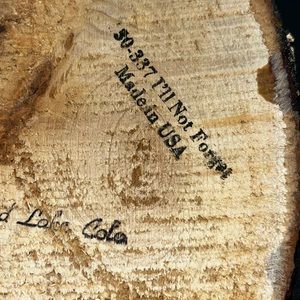 30-337 I'll Not Forget
Made in USA
d Lake, Colo